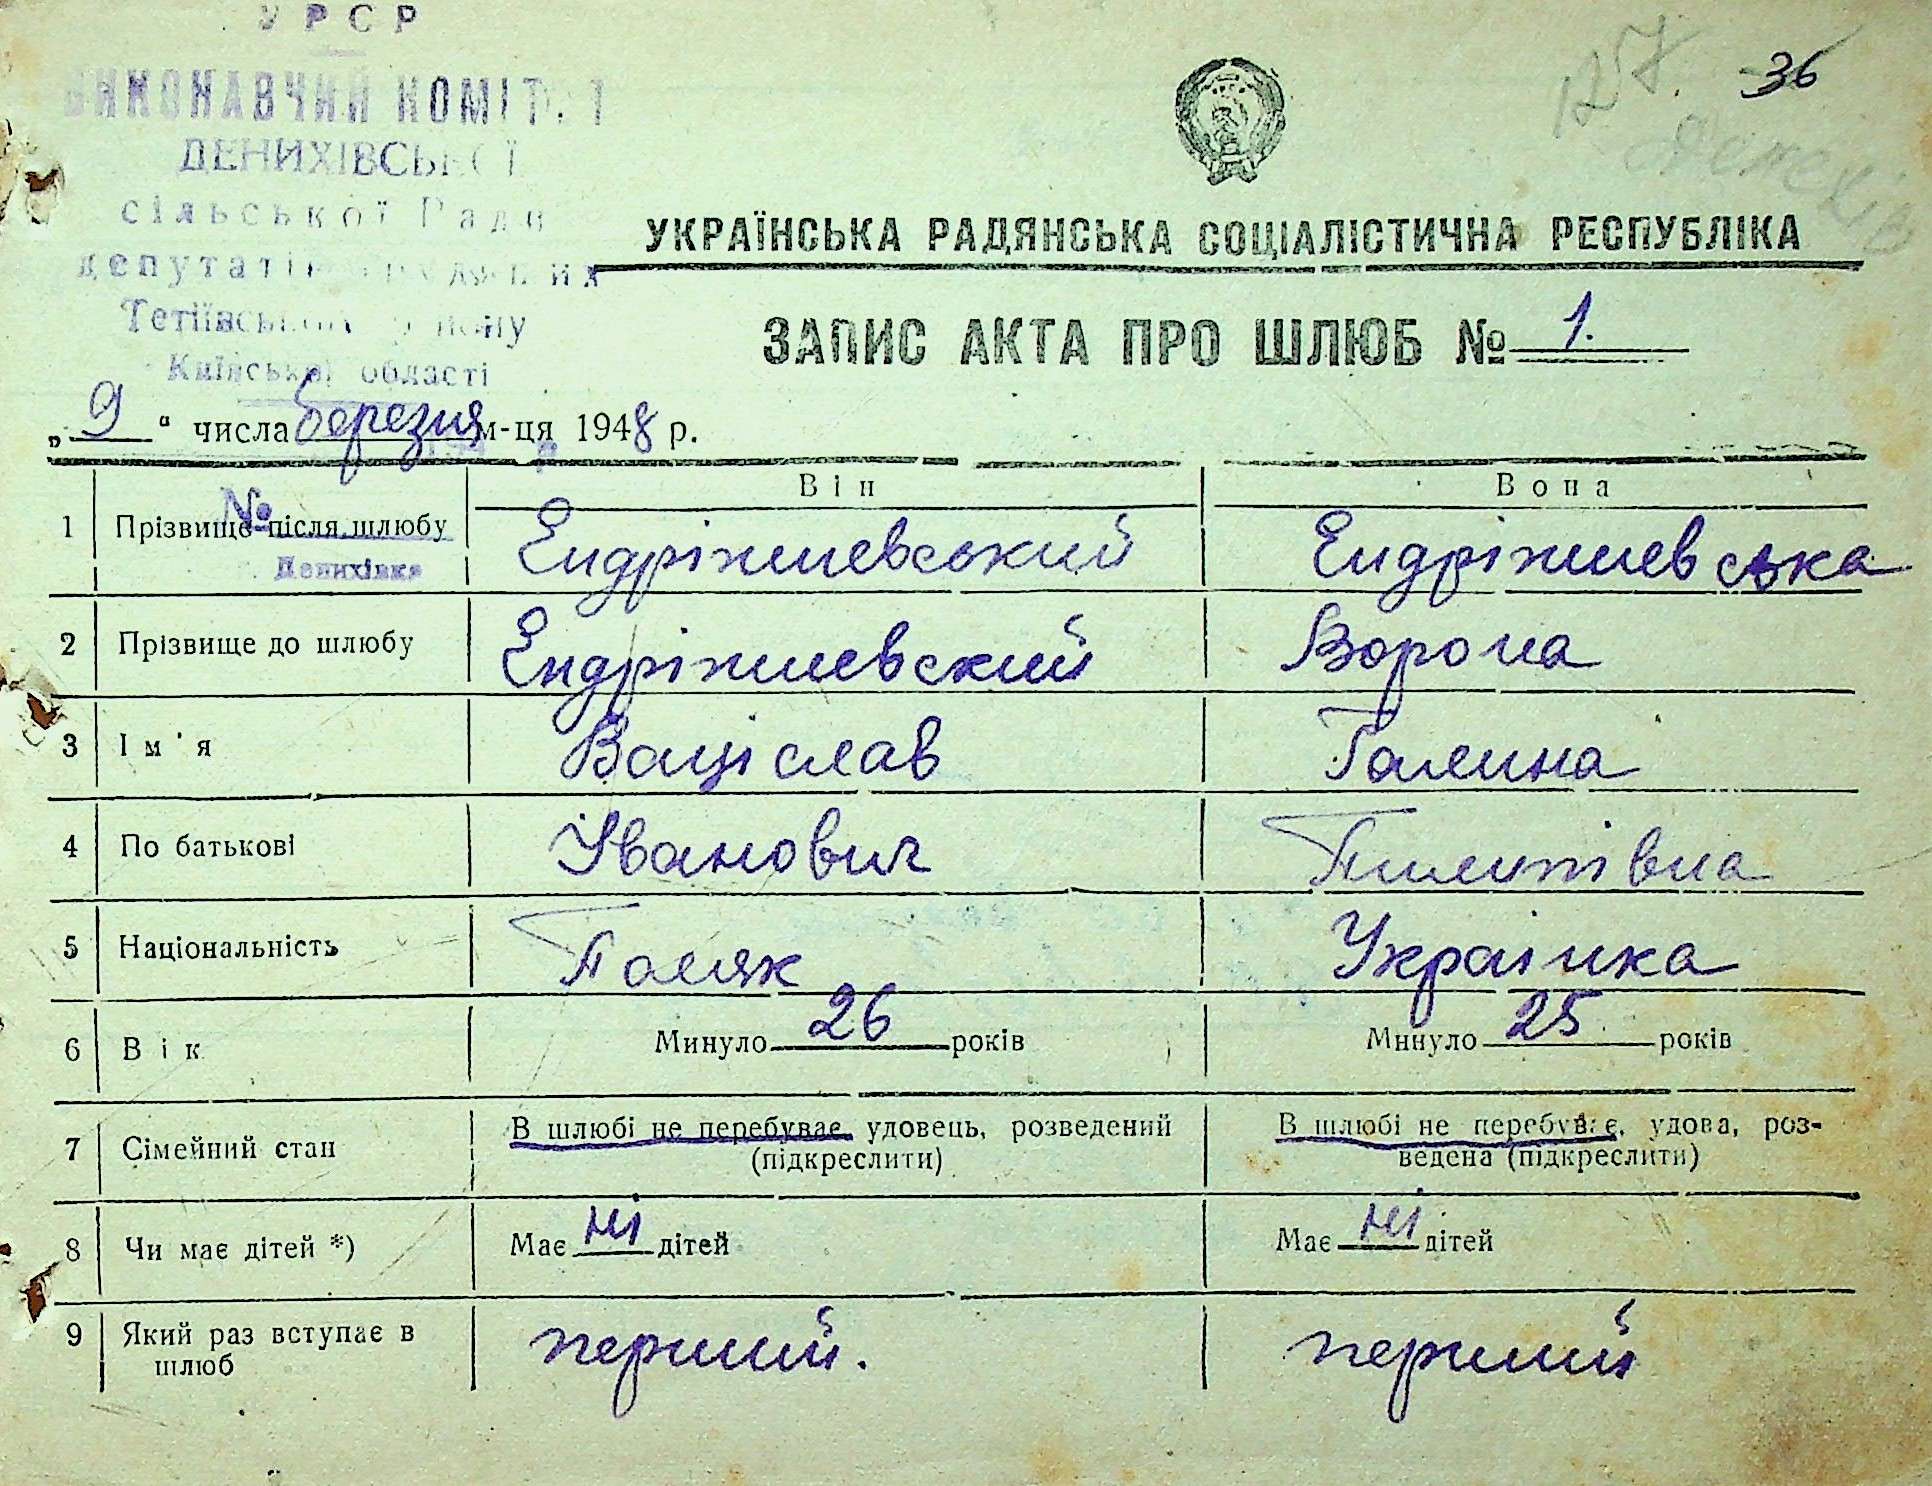 УРСР
ВИКОНАВЧИЙ КОМІТЕТ
ДЕНИХІВСЬКОЇ
сільської Ради
депутатів трудящих
Тетіївського району
Київської області
127. 36
УКРАЇНСЬКА РАДЯНСЬКА СОЦІАЛІСТИЧНА РЕСПУБЛІКА
ЗАПИС АКТА ПРО ШЛЮБ № 1.
„9“ числа березня м-ця 1948 р.
№
Денихівка
Він Вона
1 Прізвище після шлюбу Ендріжиевський Ендріжиевська
2 Прізвище до шлюбу Ендріжиевский Ворона
3 Ім'я Ваціслав Галина
4 По батькові Іванович Пилипівна
5 Національність Поляк Українка
6 Вік Минуло 26 років Минуло 25 років
7 Сімейний стан В шлюбі не перебуває, удовець, розведений (підкреслити) В шлюбі не перебуває, удова, роз-
ведена (підкреслити)
8 Чи має дітей *) Має ні дітей Має ні дітей
9 Який раз вступає в шлюб перший. перший